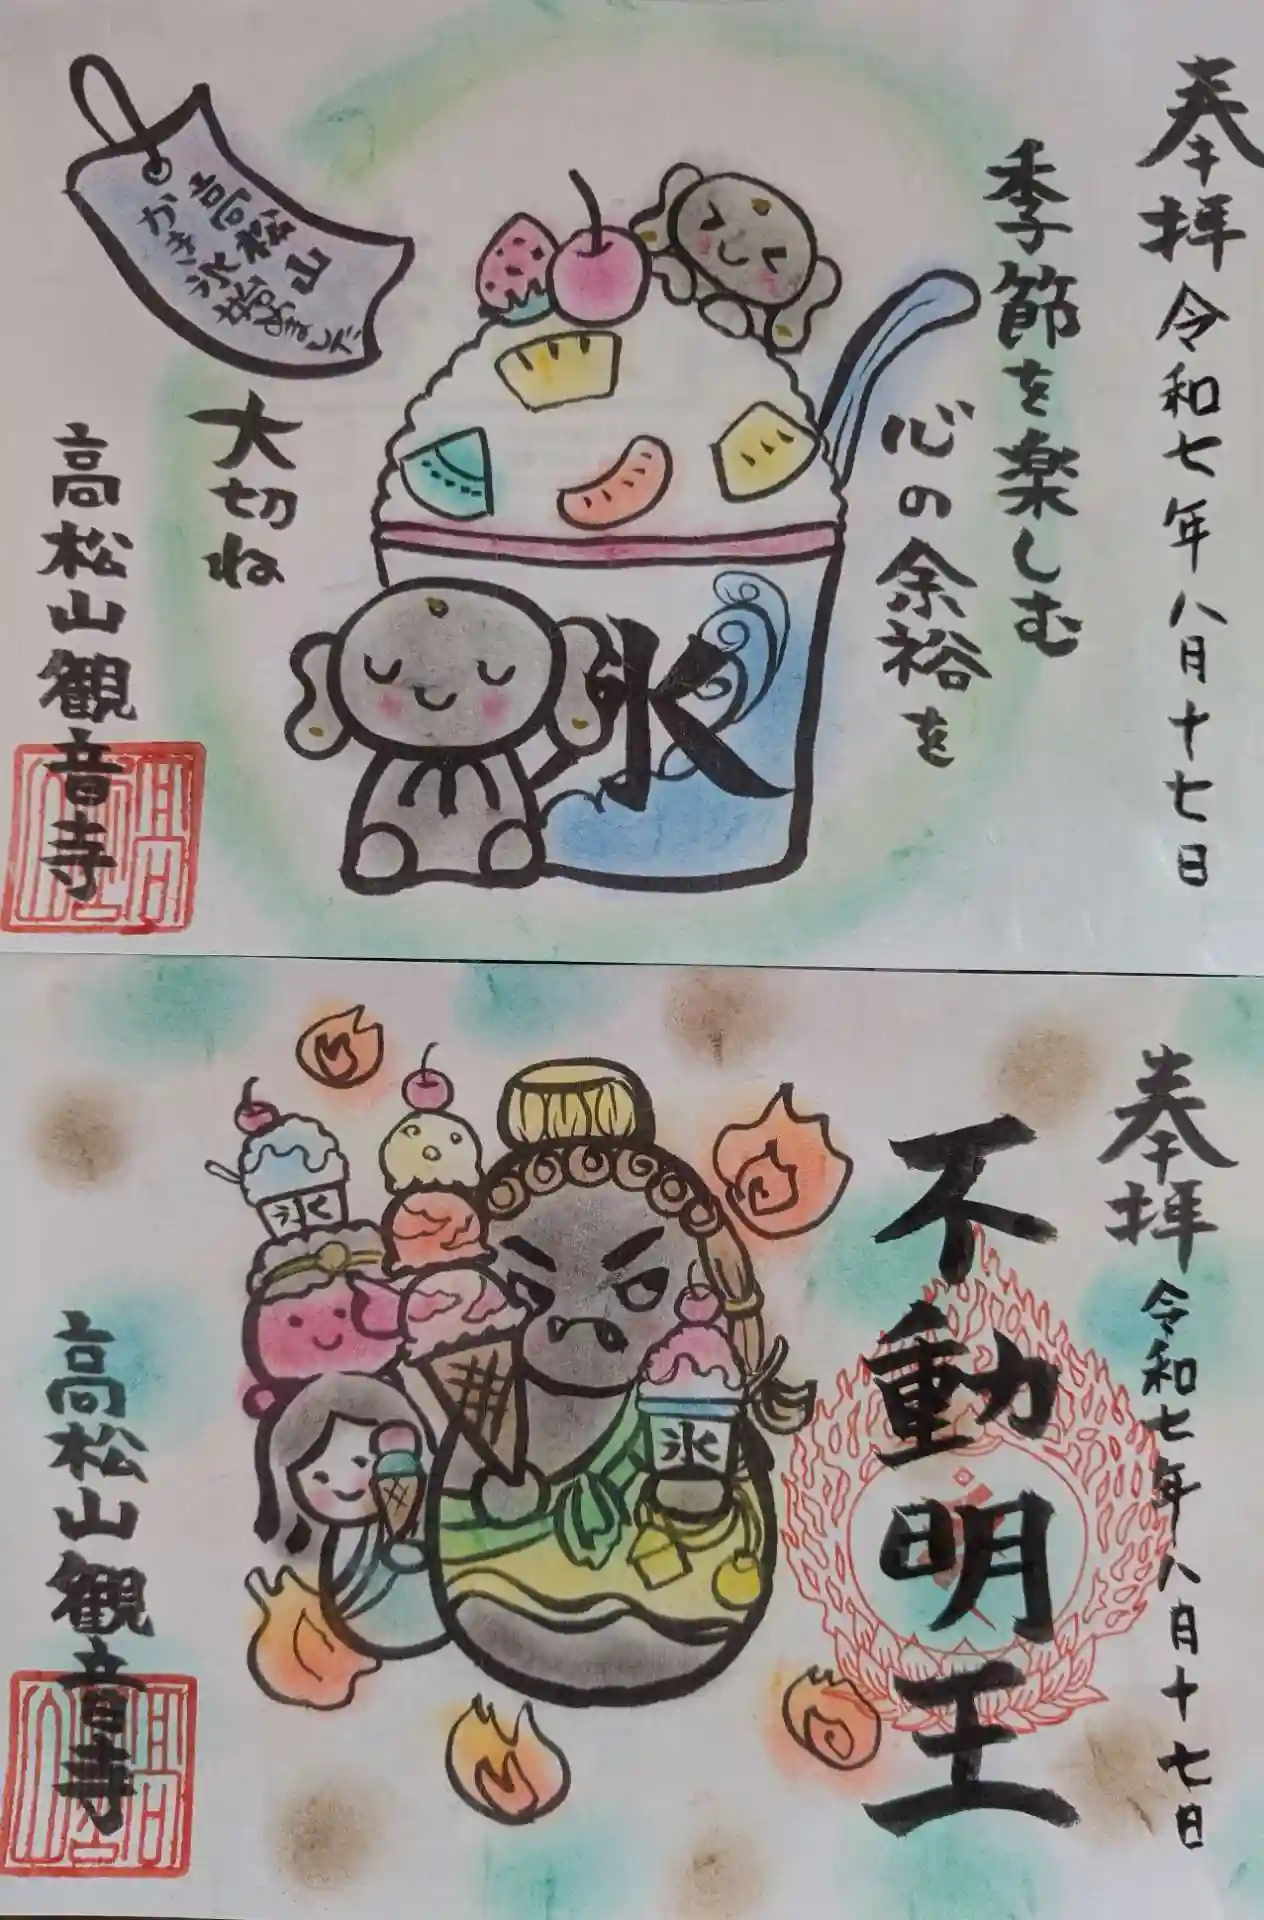 奉拝
令和七年八月十七日
季節を楽しむ
心の余裕を
大切ね
高松山
かき氷
氷
高松山観音寺
奉拝
令和七年八月十七日
不動明王
氷
氷
高松山観音寺